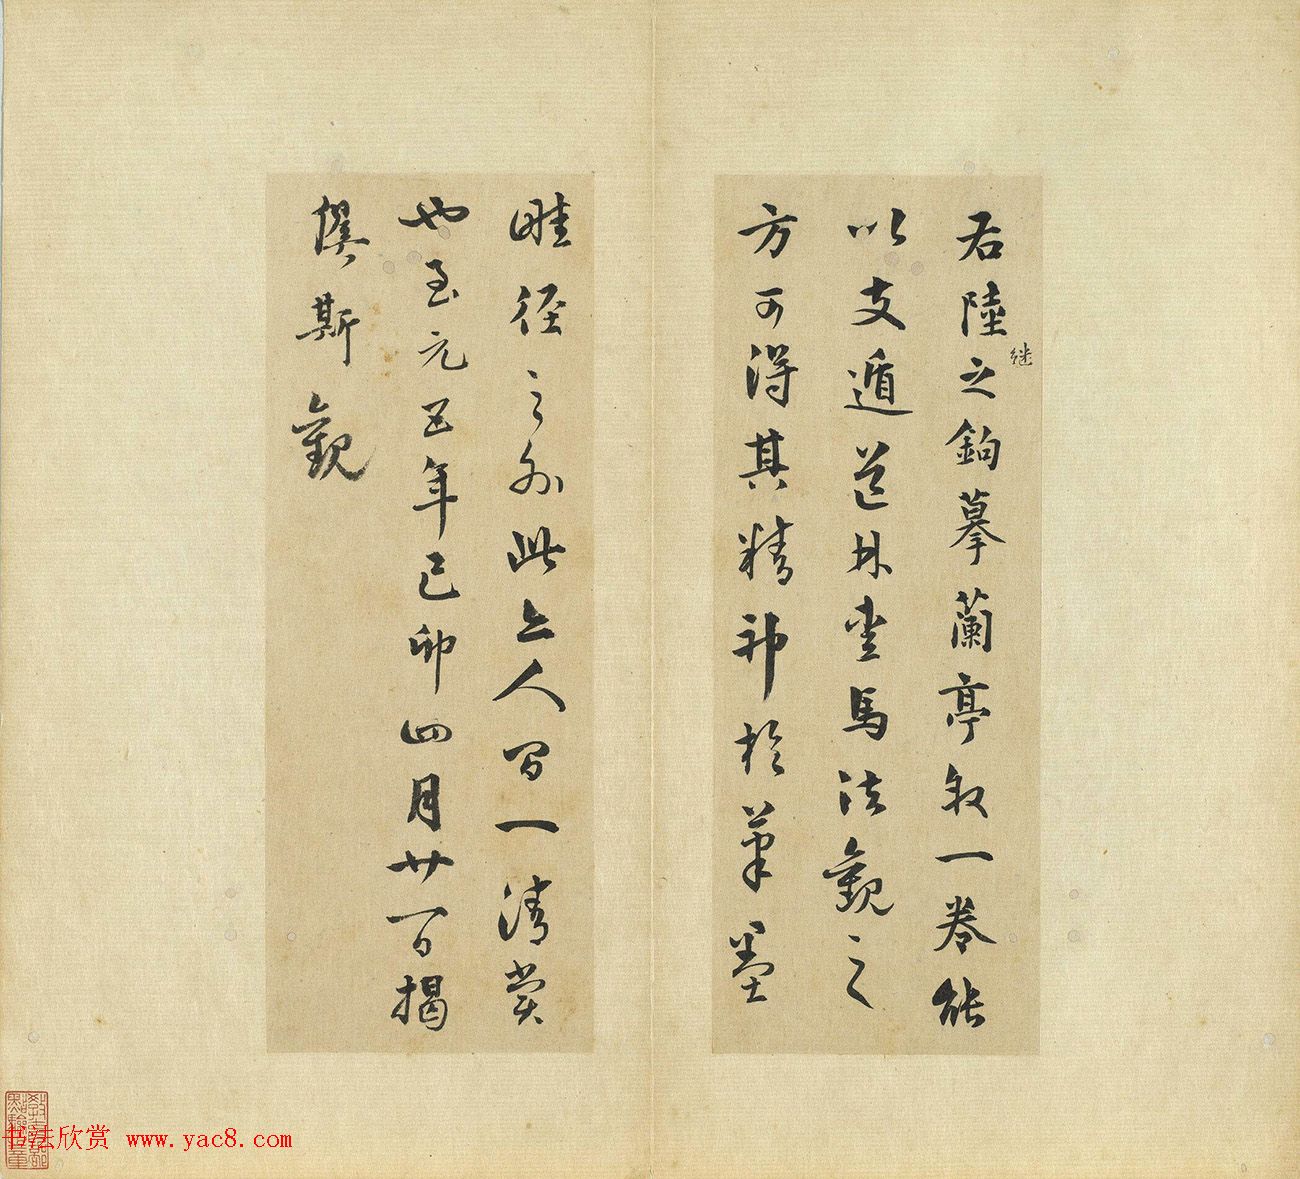 右陸继之鉤摹蘭亭叙一卷能
以支遁道林愛馬法觀之
方可得其精神於筆墨
畦徑之外此亦人間一清賞
也至元五年己卯四月廿一日揭
傒斯觀
书法欣赏 www.yac8.com